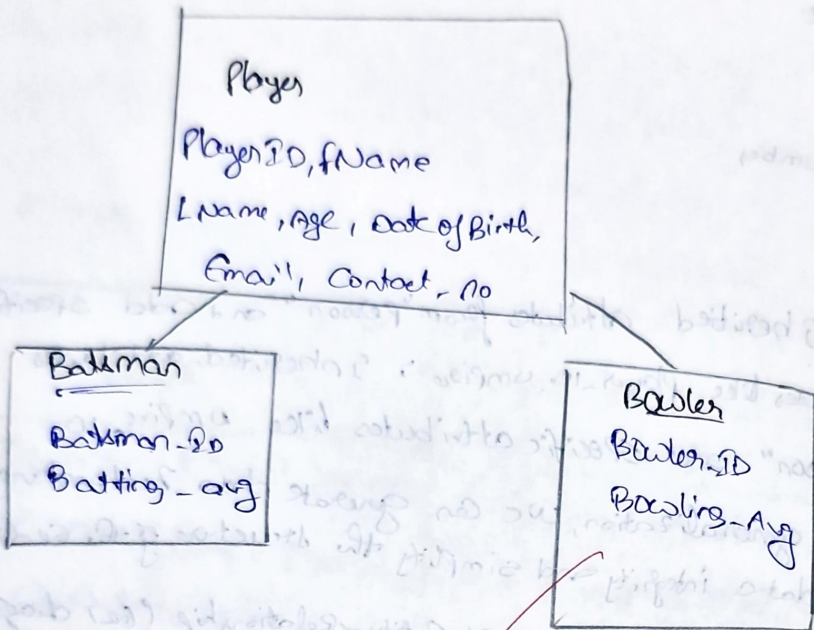 Player
PlayerID, fName
LName, Age, Date of Birth,
Email, Contact_no
Batsman
Batsman_ID
Batting_avg
Bowler
Bowler_ID
Bowling_Avg